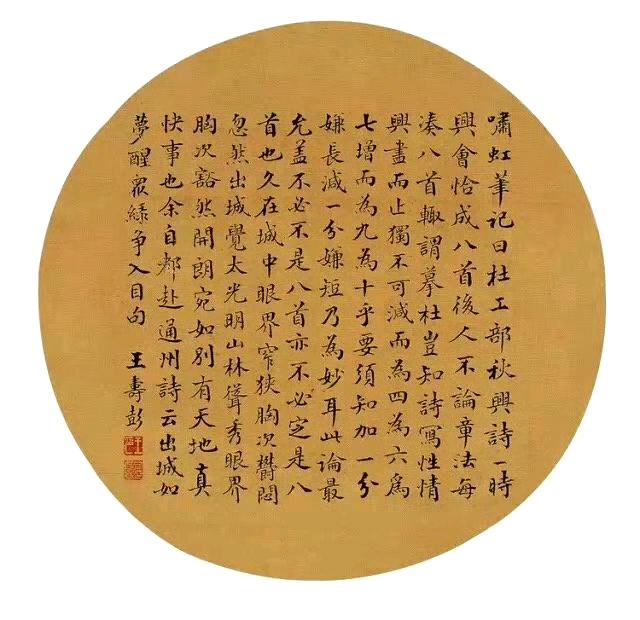 嘯虹筆记曰杜工部秋興詩一時
興會恰成八首後人不論章法每
凑八首輙謂摹杜豈知詩寫性情
興盡而止獨不可減而為四為六為
七增而為九為十乎要須知加一分
嫌長減一分嫌短乃為妙耳此論最
允盖不必不是八首亦不必定是八
首也久在城中眼界窄狹胸次鬱悶
忽然出城覺太光明山林聳秀眼界
胸次豁然開朗宛如别有天地真
快事也余自都赴通州詩云出城如
夢醒眾綠争入目句 王壽彭